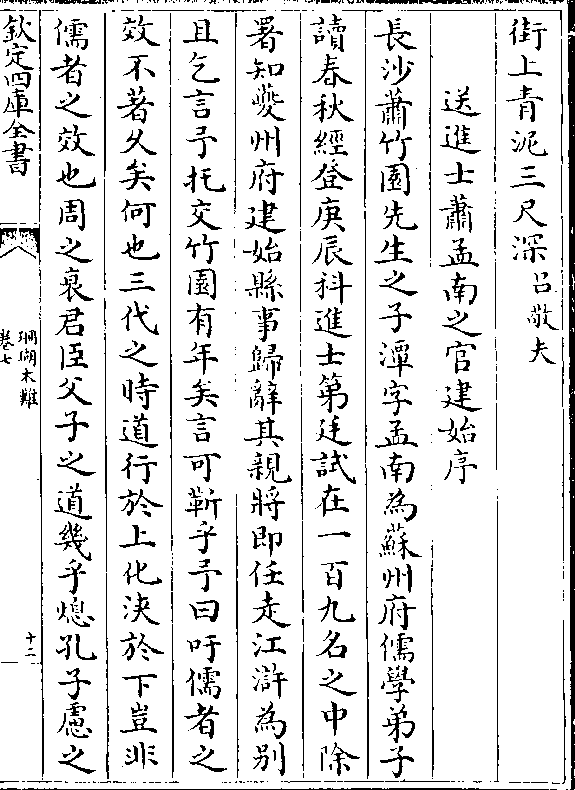 街上青泥三尺深吕敬夫
送進士蕭孟南之官建始序
長沙蕭竹園先生之子潭字孟南為蘇州府儒學弟子
讀春秋經登庚辰科進士第廷試在一百九名之中除
署知夔州府建始縣事歸辭其親將即任走江滸為别
且乞言予托交竹園有年矣言可靳乎予曰吁儒者之
效不著久矣何也三代之時道行於上化浹於下豈非
儒者之效也周之衰君臣父子之道幾乎熄孔子慮之
欽定四庫全書
珊瑚木難
卷七
十二